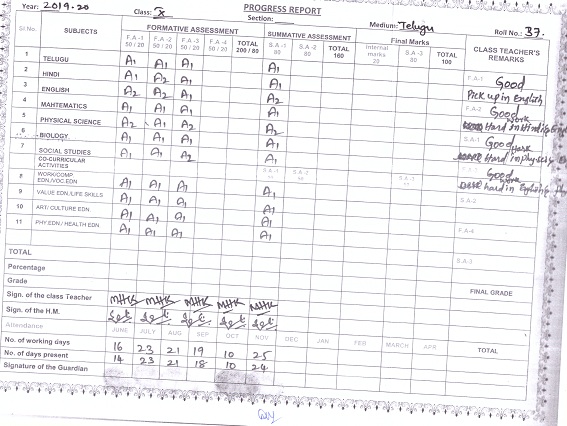 PROGRESS REPORT
Year: 2019-20 Class: X Section: Medium: Telugu Roll No.: 37.
Sl.No. SUBJECTS FORMATIVE ASSESSMENT SUMMATIVE ASSESSMENT Final Marks CLASS TEACHER'S REMARKS
F.A -1 50 / 20 F.A -2 50 / 20 F.A -3 50 / 20 F.A -4 50 / 20 TOTAL 200 / 80 S.A -1 80 S.A -2 80 TOTAL 160 Internal marks 20 S.A -3 80 TOTAL 100
1 TELUGU A1 A1 A1 A1
2 HINDI A1 A2 A1 A1
3 ENGLISH A2 A2 A1 A2
4 MAHTEMATICS A1 A1 A1 A1
5 PHYSICAL SCIENCE A2 A1 A2 A2
6 BIOLOGY A1 A1 A1 A1
7 SOCIAL STUDIES A1 A1 A2 A1
CO-CURRICULAR ACTIVITIES S.A -1 S.A -2 S.A -3
8 WORK/COMP. EDN./VOC.EDN. A1 A1 A2
9 VALUE EDN./LIFE SKILLS A1 A1 A1 A1
10 ART/ CULTURE EDN. A1 A1 A1 A1
11 PHY.EDN / HEALTH EDN. A1 A1 A1 A1
F.A-1 Good
Pick up in English
F.A-2 Good
work Hard in Hindi
S.A-1 Good
work Hard in
Good
work hard in English
S.A-2
F.A-4
S.A-3
TOTAL
Percentage
Grade FINAL GRADE
Sign. of the class Teacher
Sign. of the H.M.
Attendance JUNE JULY AUG SEP OCT NOV DEC JAN FEB MARCH APR. TOTAL
No. of working days 16 23 21 19 10 25
No. of days present 14 23 21 18 10 24
Signature of the Guardian